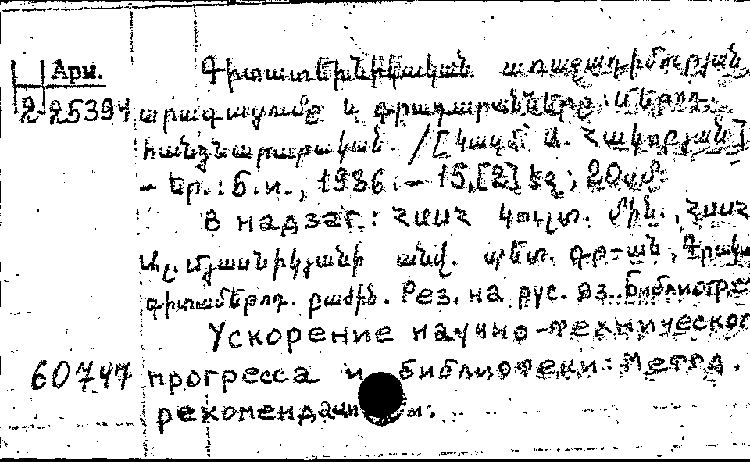 Арм.
Գիտատեխնիկական առաջադիմության
2-25394 արագացումը և գրադարանները: Մեթոդ.
հանձնարարական. / [Կազմ. Ա. Հակոբյան]
- Եր.: Б.и., 1986. - 15, [2] էջ; 20 սմ
В надзаг.: ՀՍՍՀ Կուլտ. մին., ՀՍՍՀ
Ալ. Մյասնիկյանի անվ. պետ. գր-ան,
գիտամեթոդ. բաժին. Рез. на рус. яз. Библиогр
Ускорение научно-техническог
60747 прогресса и библиотеки: Метод.
рекомендации